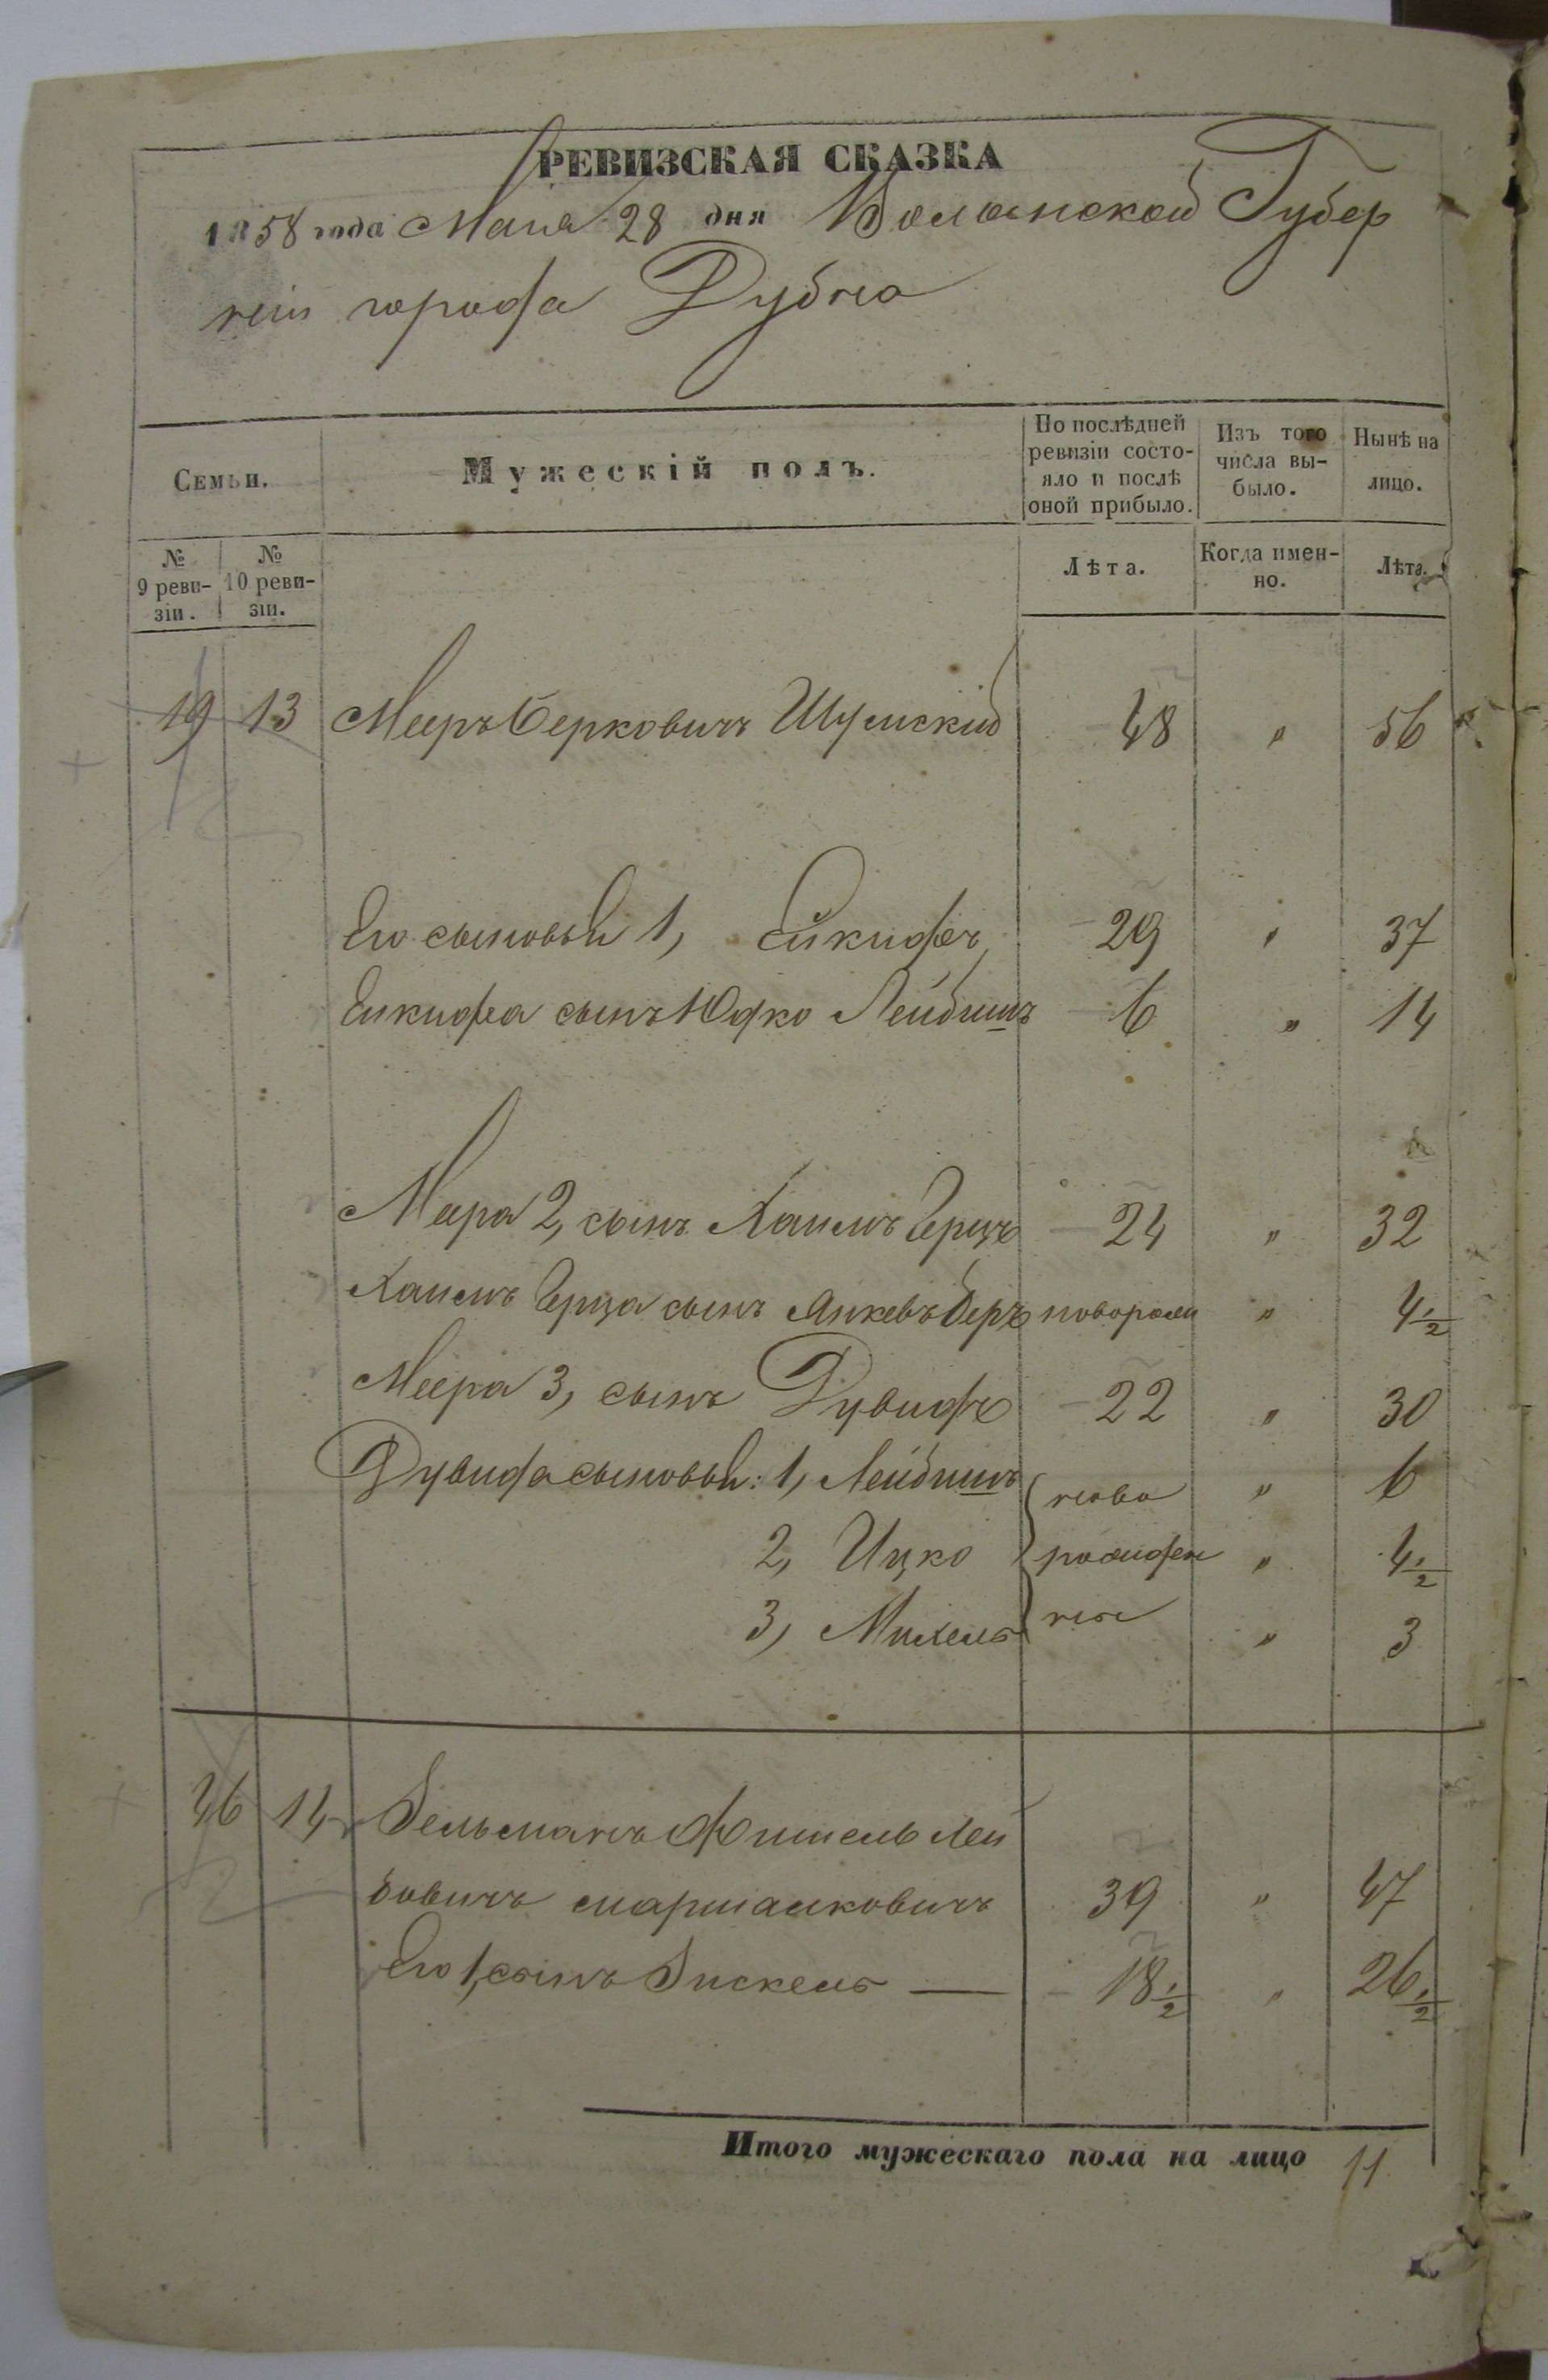 РЕВИЗСКАЯ СКАЗКА
1858 года Мая 28 дня Волынской Губер
ніи города Дубна
Семьи.
Мужескій полъ.
По послѣдней ревизіи состо-яло и послѣ оной прибыло.
Изъ того числа вы-было.
Нынѣ на лицо.
№ 9 реви-зіи.
№ 10 реви-зіи.
Лѣта.
Когда имен-но.
Лѣта.
19 13 Мееръ Берковичъ Шумскій 48 " 56
Его сыновья 1, 29 " 37
сынъ Юдко Лейбишъ 6 " 14
Меера 2, сынъ Хаимъ Герцъ 24 " 32
Хаимъ Герца сынъ Янкевъ Беръ " 4 1/2
Меера 3, сынъ Дувидъ 22 " 30
Дувида сыновья: 1, Лейбишъ ново " 6
2, Ицко рожден " 4 1/2
3, Михель ное " 3
46 14 Зельманъ Фишель Лей
бовичъ маршалковичъ 39 " 47
Его 1, сынъ — 18 1/2 " 26 1/2
Итого мужескаго пола на лицо 11